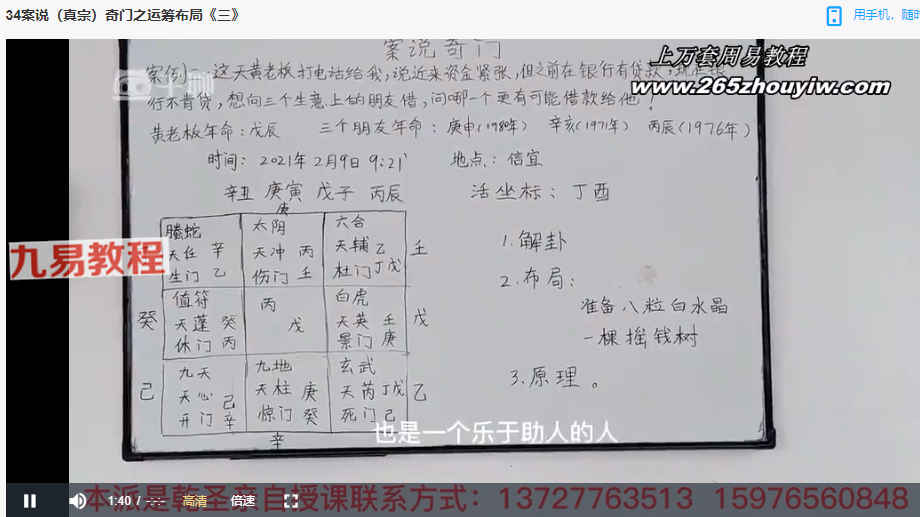 34案说（真宗）奇门之运筹布局《三》
用手机，随时
案说奇门
上万套周易教程
www.265zhouyiw.com
案例一 这天黄老板打电话给我，说近来资金紧张，但之前在银行有贷款，现在银
行不肯贷，想向三个生意上的朋友借，问哪一个更有可能借款给他！
黄老板年命：戊辰 三个朋友年命：庚申(1980年) 辛亥(1971年) 丙辰(1976年)
时间：2021年2月9日 9:21 地点：信宜
辛丑 庚寅 戊子 丙辰 活坐标：丁酉
庚
螣蛇 太阴 六合
天任 辛 天冲 丙 天辅 乙 壬
生门 乙 伤门 壬 杜门 丁戊
九易教程
值符 丙 白虎
癸 天蓬 癸 戊 天英 壬 戊
休门 丙 景门 庚
九天 九地 玄武
己 天心 己 天柱 庚 天芮 丁戊 乙
开门 辛 惊门 癸 死门 己
辛
1.解卦
2.布局：
准备八粒白水晶
一棵摇钱树
3.原理。
也是一个乐于助人的人
1:40 / --:-- 高清 倍速
本派是乾圣亲自授课联系方式：13727763513 15976560848